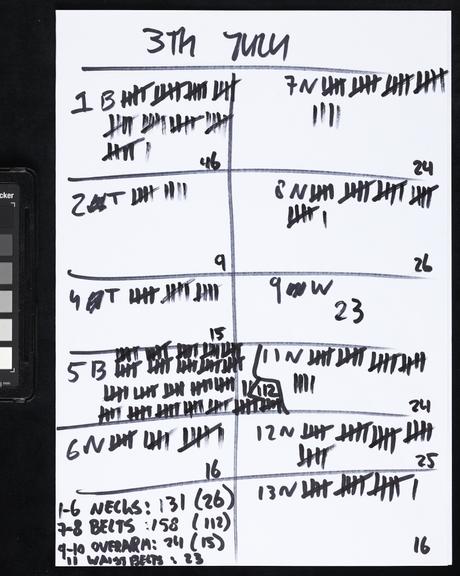 3TH JULY
1 B
46
2 T
9
4 T
15
5 B
112
6 N
16
7 N
24
8 N
26
9 W
23
11 N
24
12 N
25
13 N
16
1-6 NECKS: 131 (26)
7-8 BELTS: 158 (112)
9-10 OVERARM: 24 (15)
11 WAIST BELTS: 23
cker